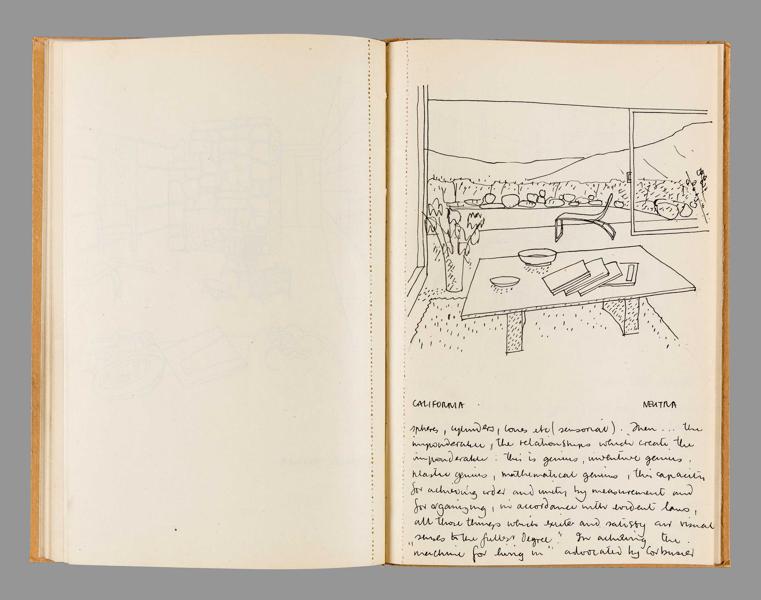 CALIFORNIA NEUTRA
spheres, cylinders, cones etc (sensorial). Then ... the
imponderable, the relationships which create the
imponderable. this is genius, inventive genius,
plastic genius, mathematical genius, this capacity
for achieving order and unity by measurement and
for organizing, in accordance with evident laws,
all those things which excite and satisfy our visual
senses to the fullest degree." In achieving the
"machine for living in" advocated by Corbusier